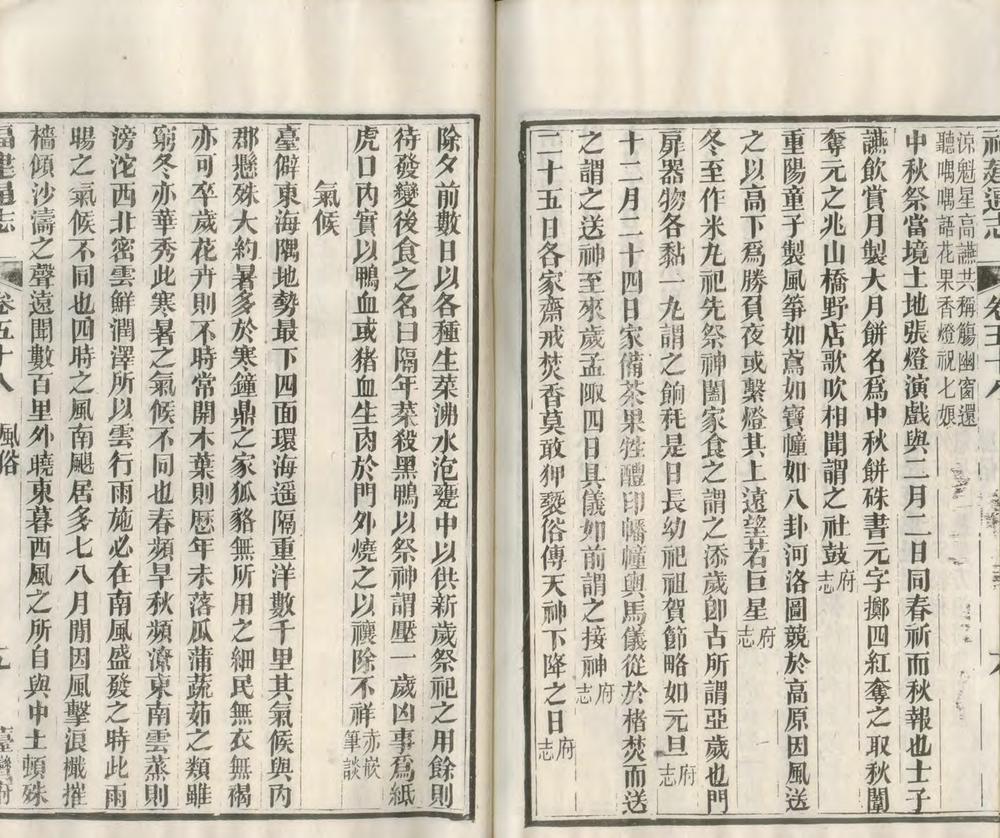 福建通志 卷五十八
涼魁星高讌共稱觴幽窗還
聽喁喁語花果香燈祝七娘
中秋祭當境土地張燈演戲與二月二日同春祈而秋報也士子
讌飲賞月製大月餅名爲中秋餅硃書元字擲四紅奪之取秋闈
奪元之兆山橋野店歌吹相聞謂之社鼓府志
重陽童子製風箏如鳶如寶幢如八卦河洛圖競於高原因風送
之以高下爲勝負夜或繫燈其上遠望若巨星府志
冬至作米丸祀先祭神闔家食之謂之添歲卽古所謂亞歲也門
扉器物各黏一丸謂之餉耗是日長幼祀祖賀節略如元旦府志
十二月二十四日家備茶果牲醴印幡幢輿馬儀從於楮焚而送
之謂之送神至來歲孟陬四日具儀如前謂之接神府志
二十五日各家齋戒焚香莫敢狎褻俗傳天神下降之日府志
除夕前數日以各種生菜沸水泡甕中以供新歲祭祀之用餘則
待發變後食之名曰隔年菜殺黑鴨以祭神謂壓一歲凶事爲紙
虎口內實以鴨血或猪血生肉於門外燒之以禳除不祥赤嵌筆談
氣候
臺僻東海隅地勢最下四面環海遥隔重洋數千里其氣候與內
郡懸殊大約暑多於寒鐘鼎之家狐貉無所用之細民無衣無褐
亦可卒歲花卉則不時常開木葉則歷年未落瓜蒲蔬茹之類雖
窮冬亦華秀此寒暑之氣候不同也春頻旱秋頻潦東南雲蒸則
滂沱西北密雲鮮潤澤所以雲行雨施必在南風盛發之時此雨
暘之氣候不同也四時之風南颺居多七八月閒因風擊浪檝摧
檣傾沙濤之聲遠聞數百里外曉東暮西風之所自與中土頓殊
福建通志 卷五十八 風俗 臺灣府